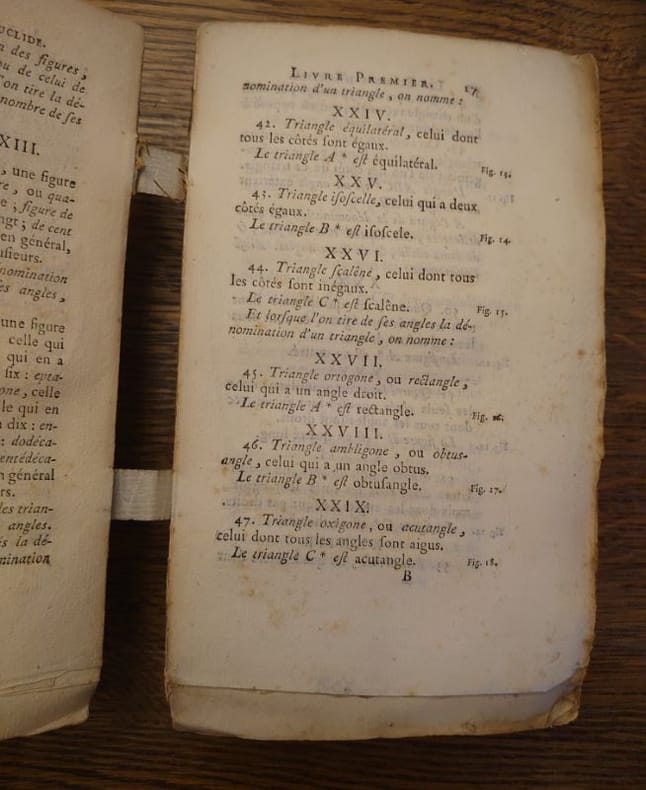 UCLIDE.
n des figures,
ou de celui de
l'on tire la dé-
nombre de ses
XIII.
, une figure
re, ou qua-
e ; figure de
ngt ; de cent
en général,
usieurs.
nomination
es angles,
une figure
celle qui
qui en a
six : epta-
one, celle
le qui en
dix : en-
: dodéca-
entédéca-
n général
rs.
les trian-
angles.
s la dé-
mination
LIVRE PREMIER. 17
nomination d'un triangle, on nomme :
XXIV.
42. Triangle équilatéral, celui dont
tous les côtés ſont égaux.
Le triangle A * eſt équilatéral. Fig. 13.
XXV.
43. Triangle iſoſcelle, celui qui a deux
côtés égaux.
Le triangle B * eſt iſoſcele. Fig. 14.
XXVI.
44. Triangle ſcalêne, celui dont tous
les côtés ſont inégaux.
Le triangle C * eſt ſcalêne. Fig. 15.
Et lorſque l'on tire de ſes angles la dé-
nomination d'un triangle, on nomme :
XXVII.
45. Triangle ortogone, ou rectangle,
celui qui a un angle droit.
Le triangle A * eſt rectangle. Fig. 16.
XXVIII.
46. Triangle ambligone, ou obtus-
angle, celui qui a un angle obtus.
Le triangle B * eſt obtuſangle. Fig. 17.
XXIX.
47. Triangle oxigone, ou acutangle,
celui dont tous les angles ſont aigus.
Le triangle C * eſt acutangle. Fig. 18.
B